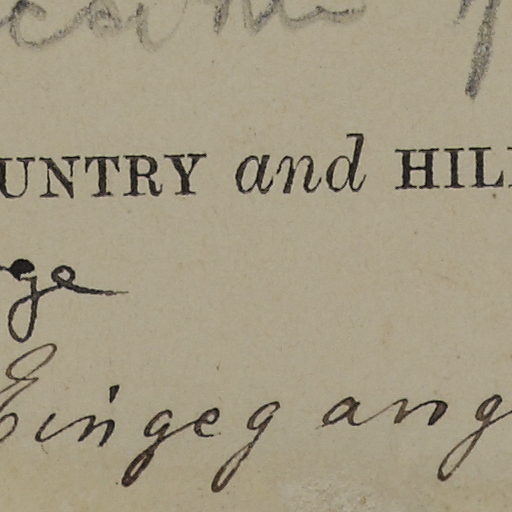 UNTRY and HILL
ge
Eingegang